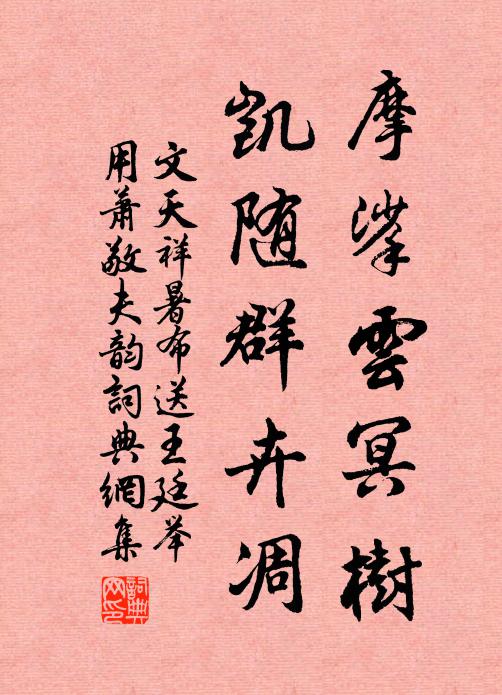 摩挲雲冥樹
凯随群卉凋
文天祥暑布送王廷举
用萧敬夫韵詞典網集
詞典网印